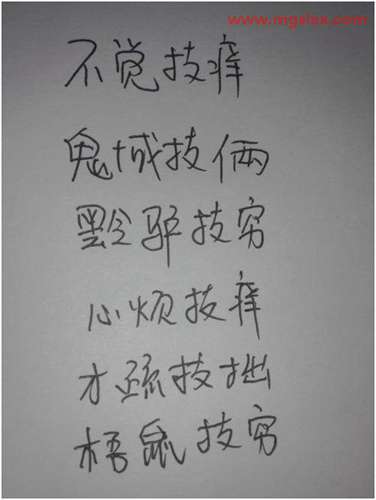 www.mgslax.com
不觉技痒
鬼域技俩
黔驴技穷
心烦技痒
才疏技拙
梧鼠技穷